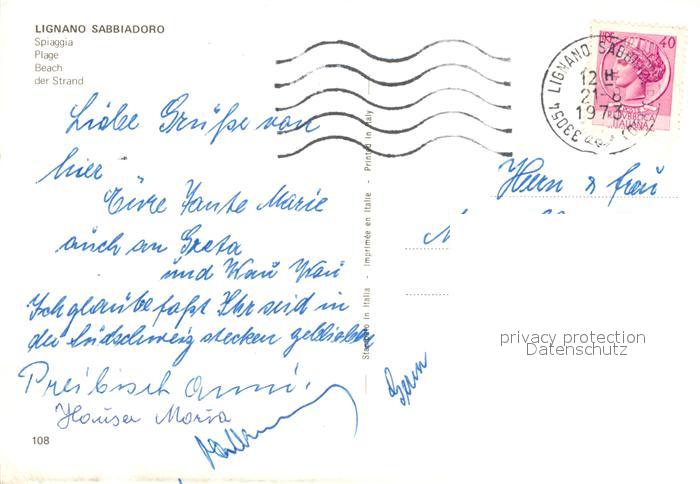 LIGNANO SABBIADORO
Spiaggia
Plage
Beach
der Strand
Liebe Grüße von
hier
Eure Tante Marie
auch an Greta
und Wau Wau
Ich glaube fast Ihr seid in
der Südschweiz stecken geblieben
Preibisch Anni.
Hauser Maria
108
Stampato in Italia - Imprimée en Italie - Printed in Italy
33054 LIGNANO SABB
12 H
21-8
1973
LIRE 40
REPVBBLICA
ITALIANA
Herrn & Frau
Bern
privacy protection
Datenschutz